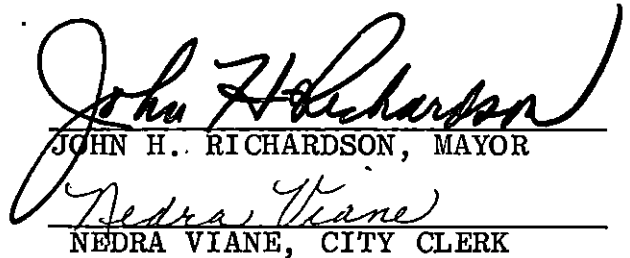 John H Richardson
JOHN H. RICHARDSON, MAYOR
Nedra Viane
NEDRA VIANE, CITY CLERK